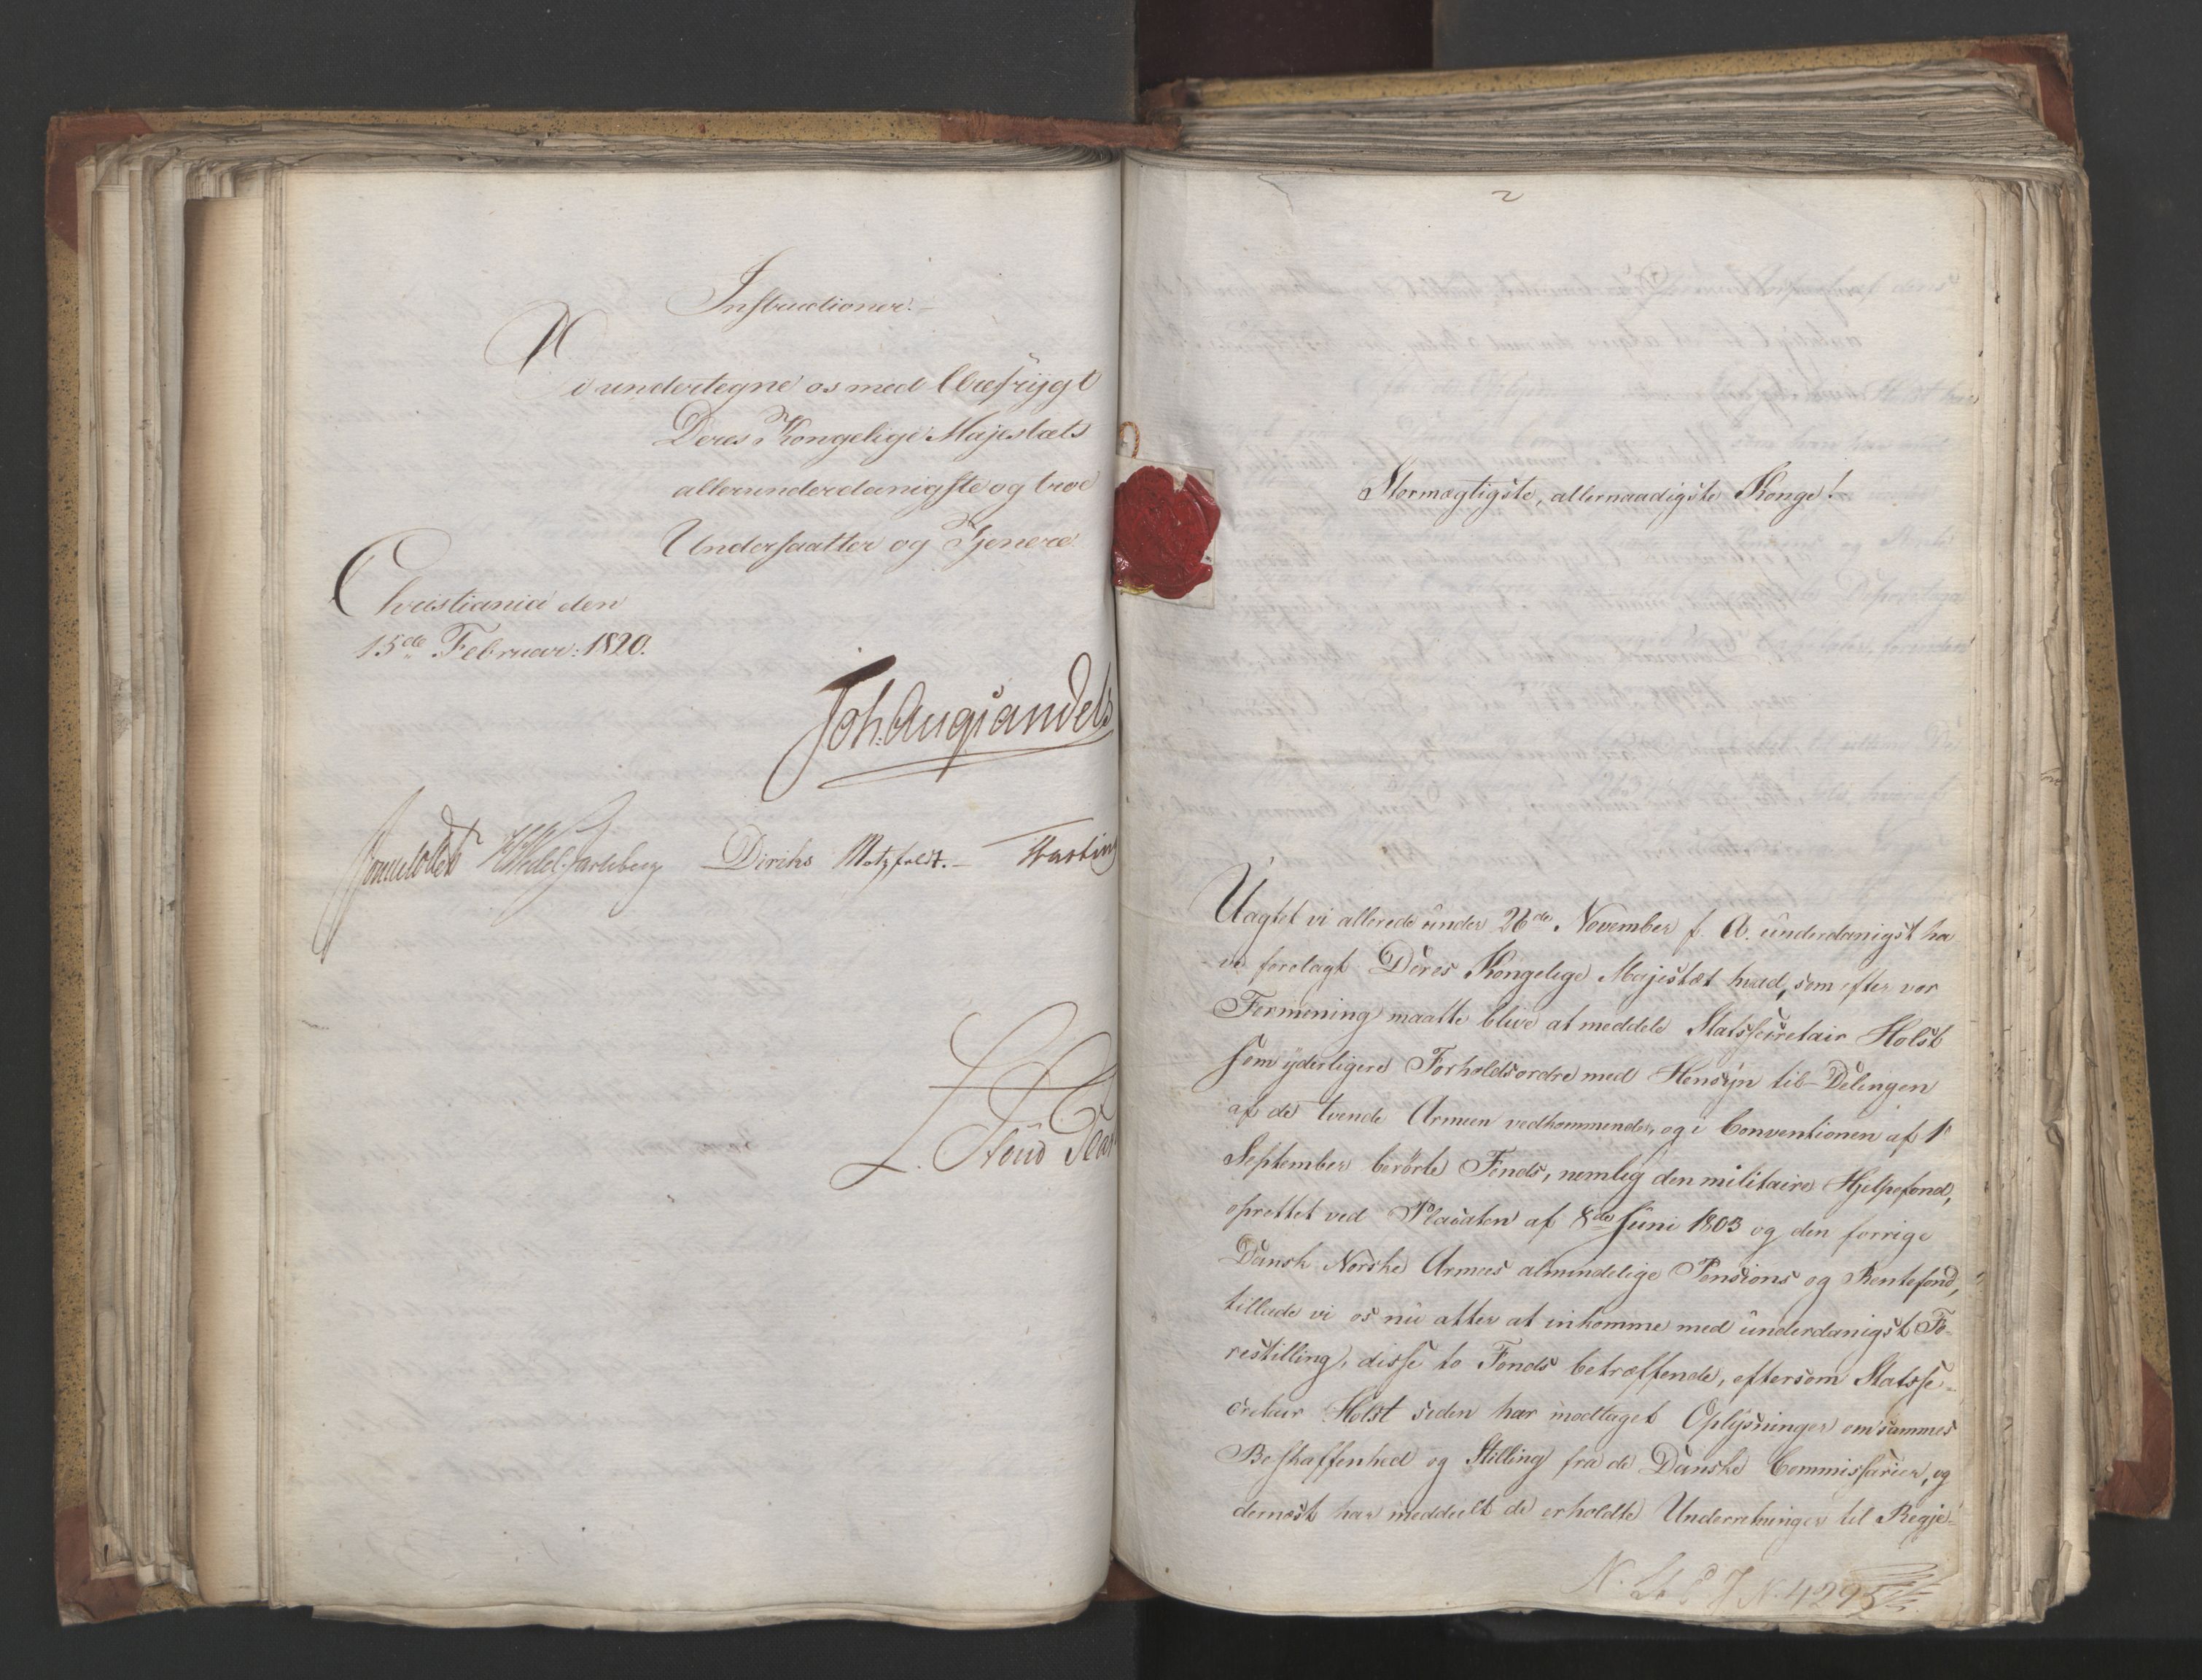 Instructioner.
Vi undertegne os med Ærefrygt
Deres Kongelige Majestæts
allerunderdanigste og troe
Undersaatter og Tjenere
Christiania den
15de Februar: 1820.
Joh. Aug. Sandels
Sommerhielm HWedel Jarlsberg Diriks Motzfeldt. Fasting
2
Stormægtigste, allernaadigste Konge!
Uagtet vi allerede under 26de November f. A. underdanigst ha
ve forelagt Deres Kongelige Majestæt hvad, som efter vor
Formening maatte blive at meddele Statssecretair Holst
som yderligere Forholdsordre med Hensyn til Delingen
af de tvende Armeen vedkommende, og i Conventionen af 1ste
September berørte Fonds, nemlig den militaire Hjelpefond,
oprettet ved Placaten af 8de Juni 1803 og den forrige
Dansk-Norske Armees almindelige Pensions og Rentefond,
tillade vi os nu atter at inkomme med underdanigst Fo-
restilling, disse to Fonds betræffende, eftersom Statsse-
cretair Holst siden har modtaget Oplysninger om sammes
Beskaffenhed og Stilling fra de Danske Commissarier, og
dernæst har meddeelt de erholdte Underretninger til Regje-
4295